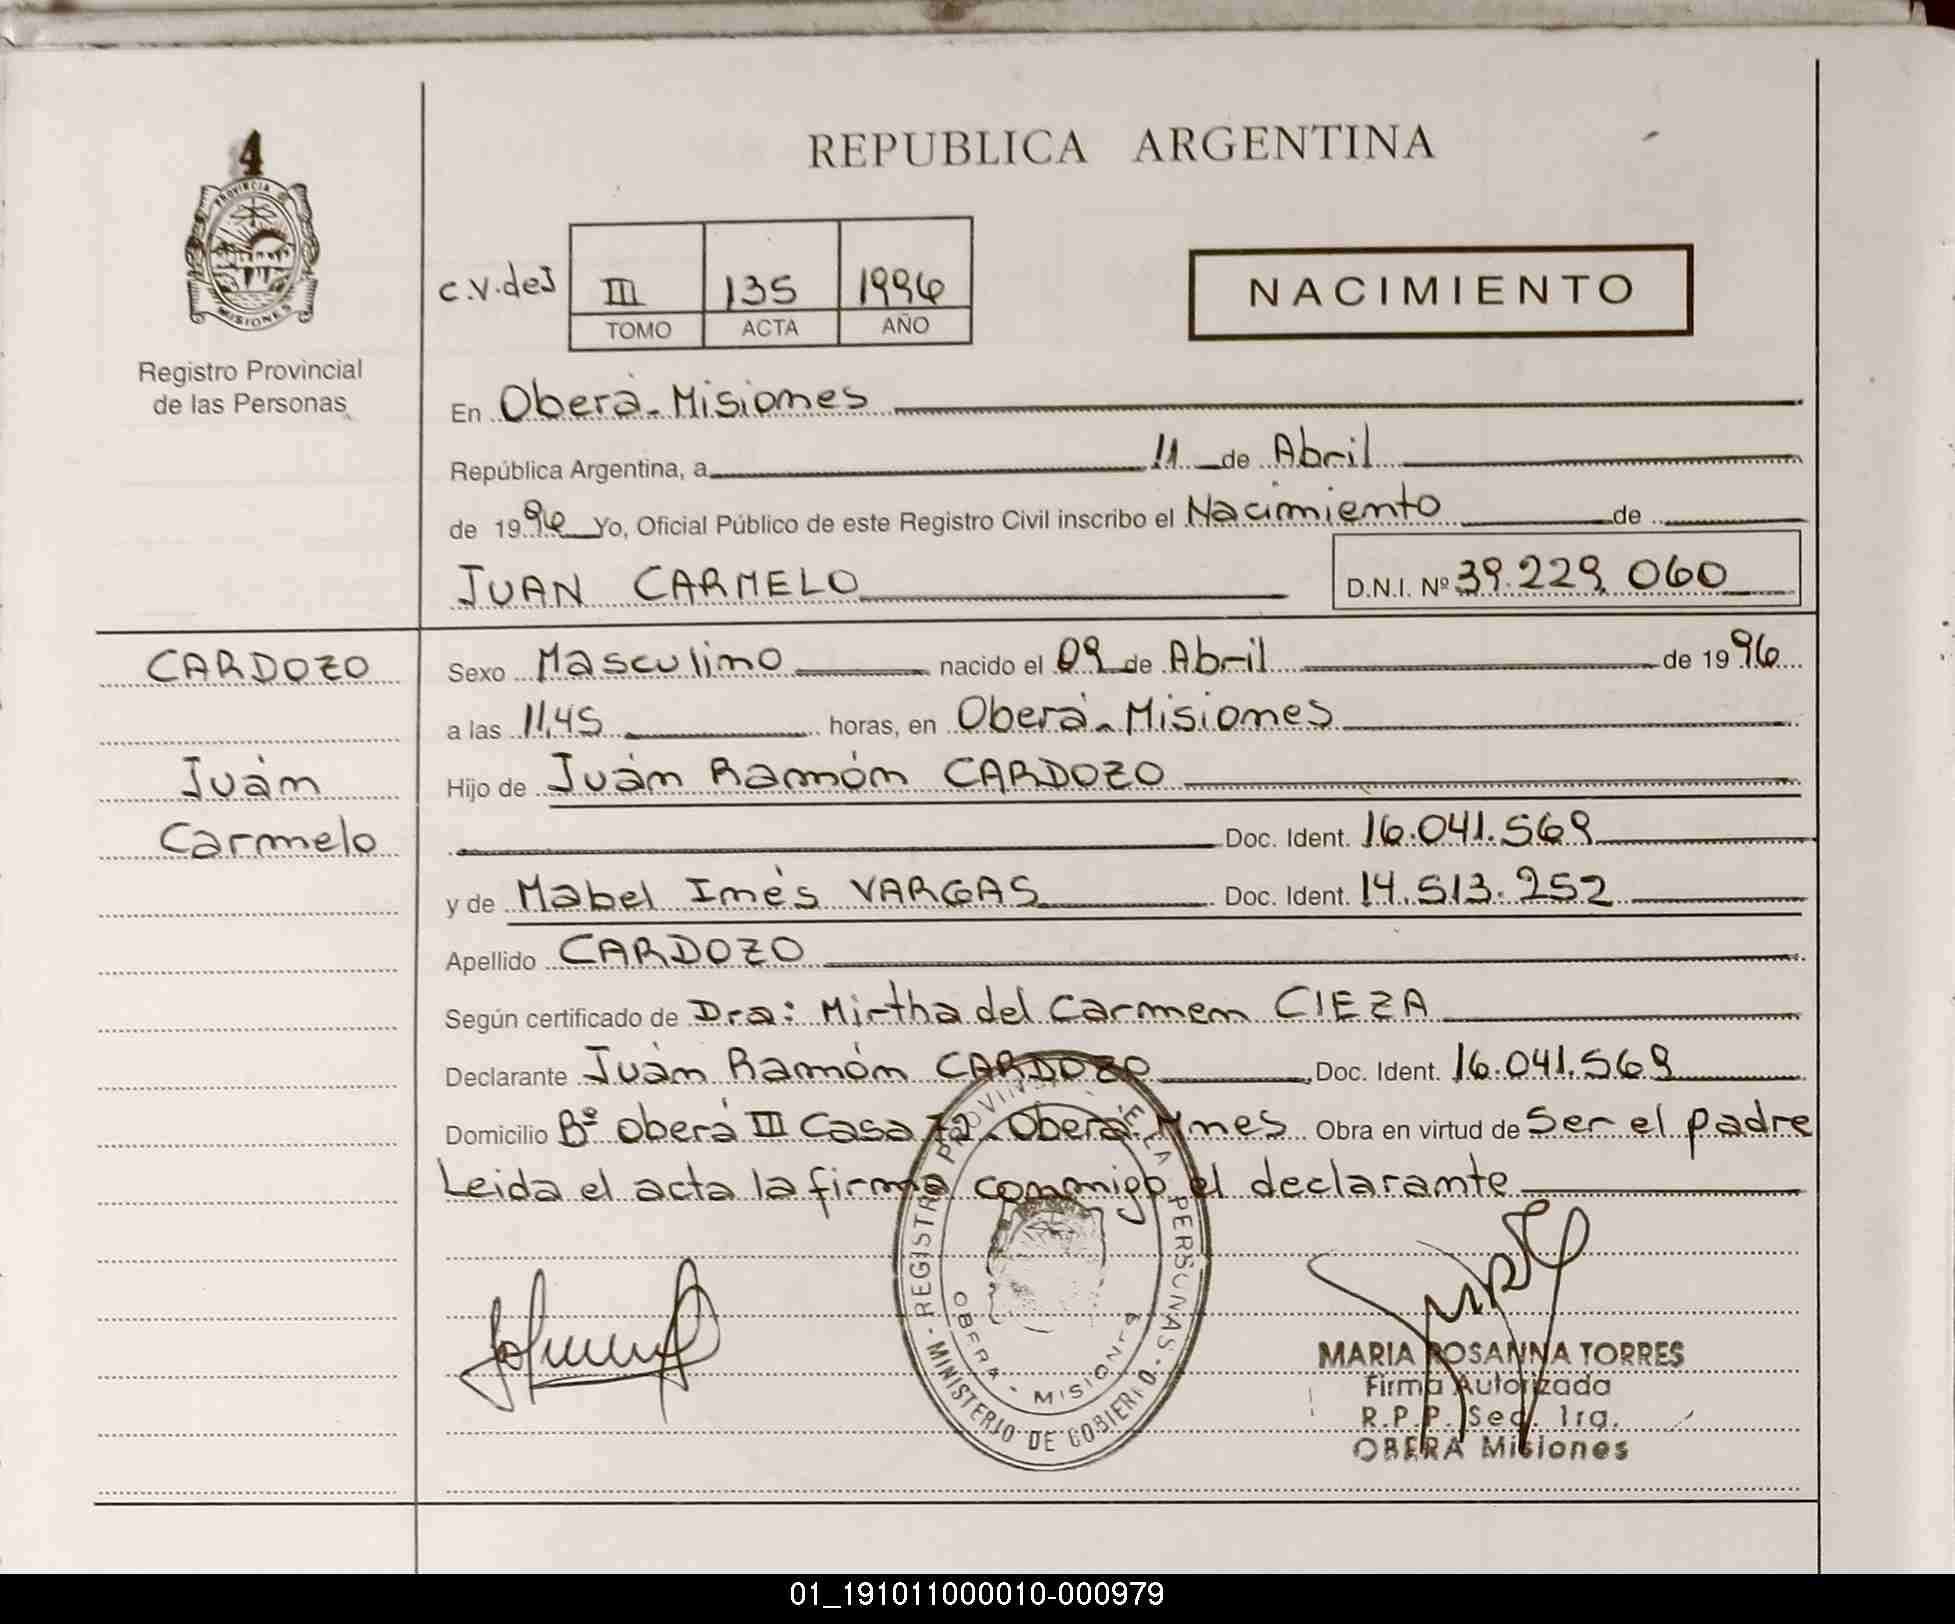 4
PROVINCIA
MISIONES
Registro Provincial
de las Personas
REPUBLICA ARGENTINA
c.v.deJ III 135 1996
TOMO ACTA AÑO
NACIMIENTO
En Oberá-Misiones
República Argentina, a 11 de Abril
de 1996 Yo, Oficial Público de este Registro Civil inscribo el Nacimiento de
JUAN CARMELO D.N.I. Nº 39.229.060
CARDOZO
Juán
Carmelo
Sexo Masculino nacido el 09 de Abril de 1996
a las 11,45 horas, en Oberá-Misiones
Hijo de Juán Ramón CARDOZO
Doc. Ident. 16.041.569
y de Mabel Inés VARGAS Doc. Ident. 14.513.252
Apellido CARDOZO
Según certificado de Dra: Mirtha del Carmen CIEZA
Declarante Juán Ramón CARDOZO Doc. Ident. 16.041.569
Domicilio Bº Oberá III Casa 72-Oberá Mnes Obra en virtud de Ser el padre
Leida el acta la firma conmigo el declarante
REGISTRO PROVIN DE LA PERSONAS
MINISTERIO DE GOBIERNO
OBERA - MISIONES
MARIA ROSANNA TORRES
Firma Autorizada
R.P.P. Sec. 1ra.
OBERA Misiones
01_191011000010-000979